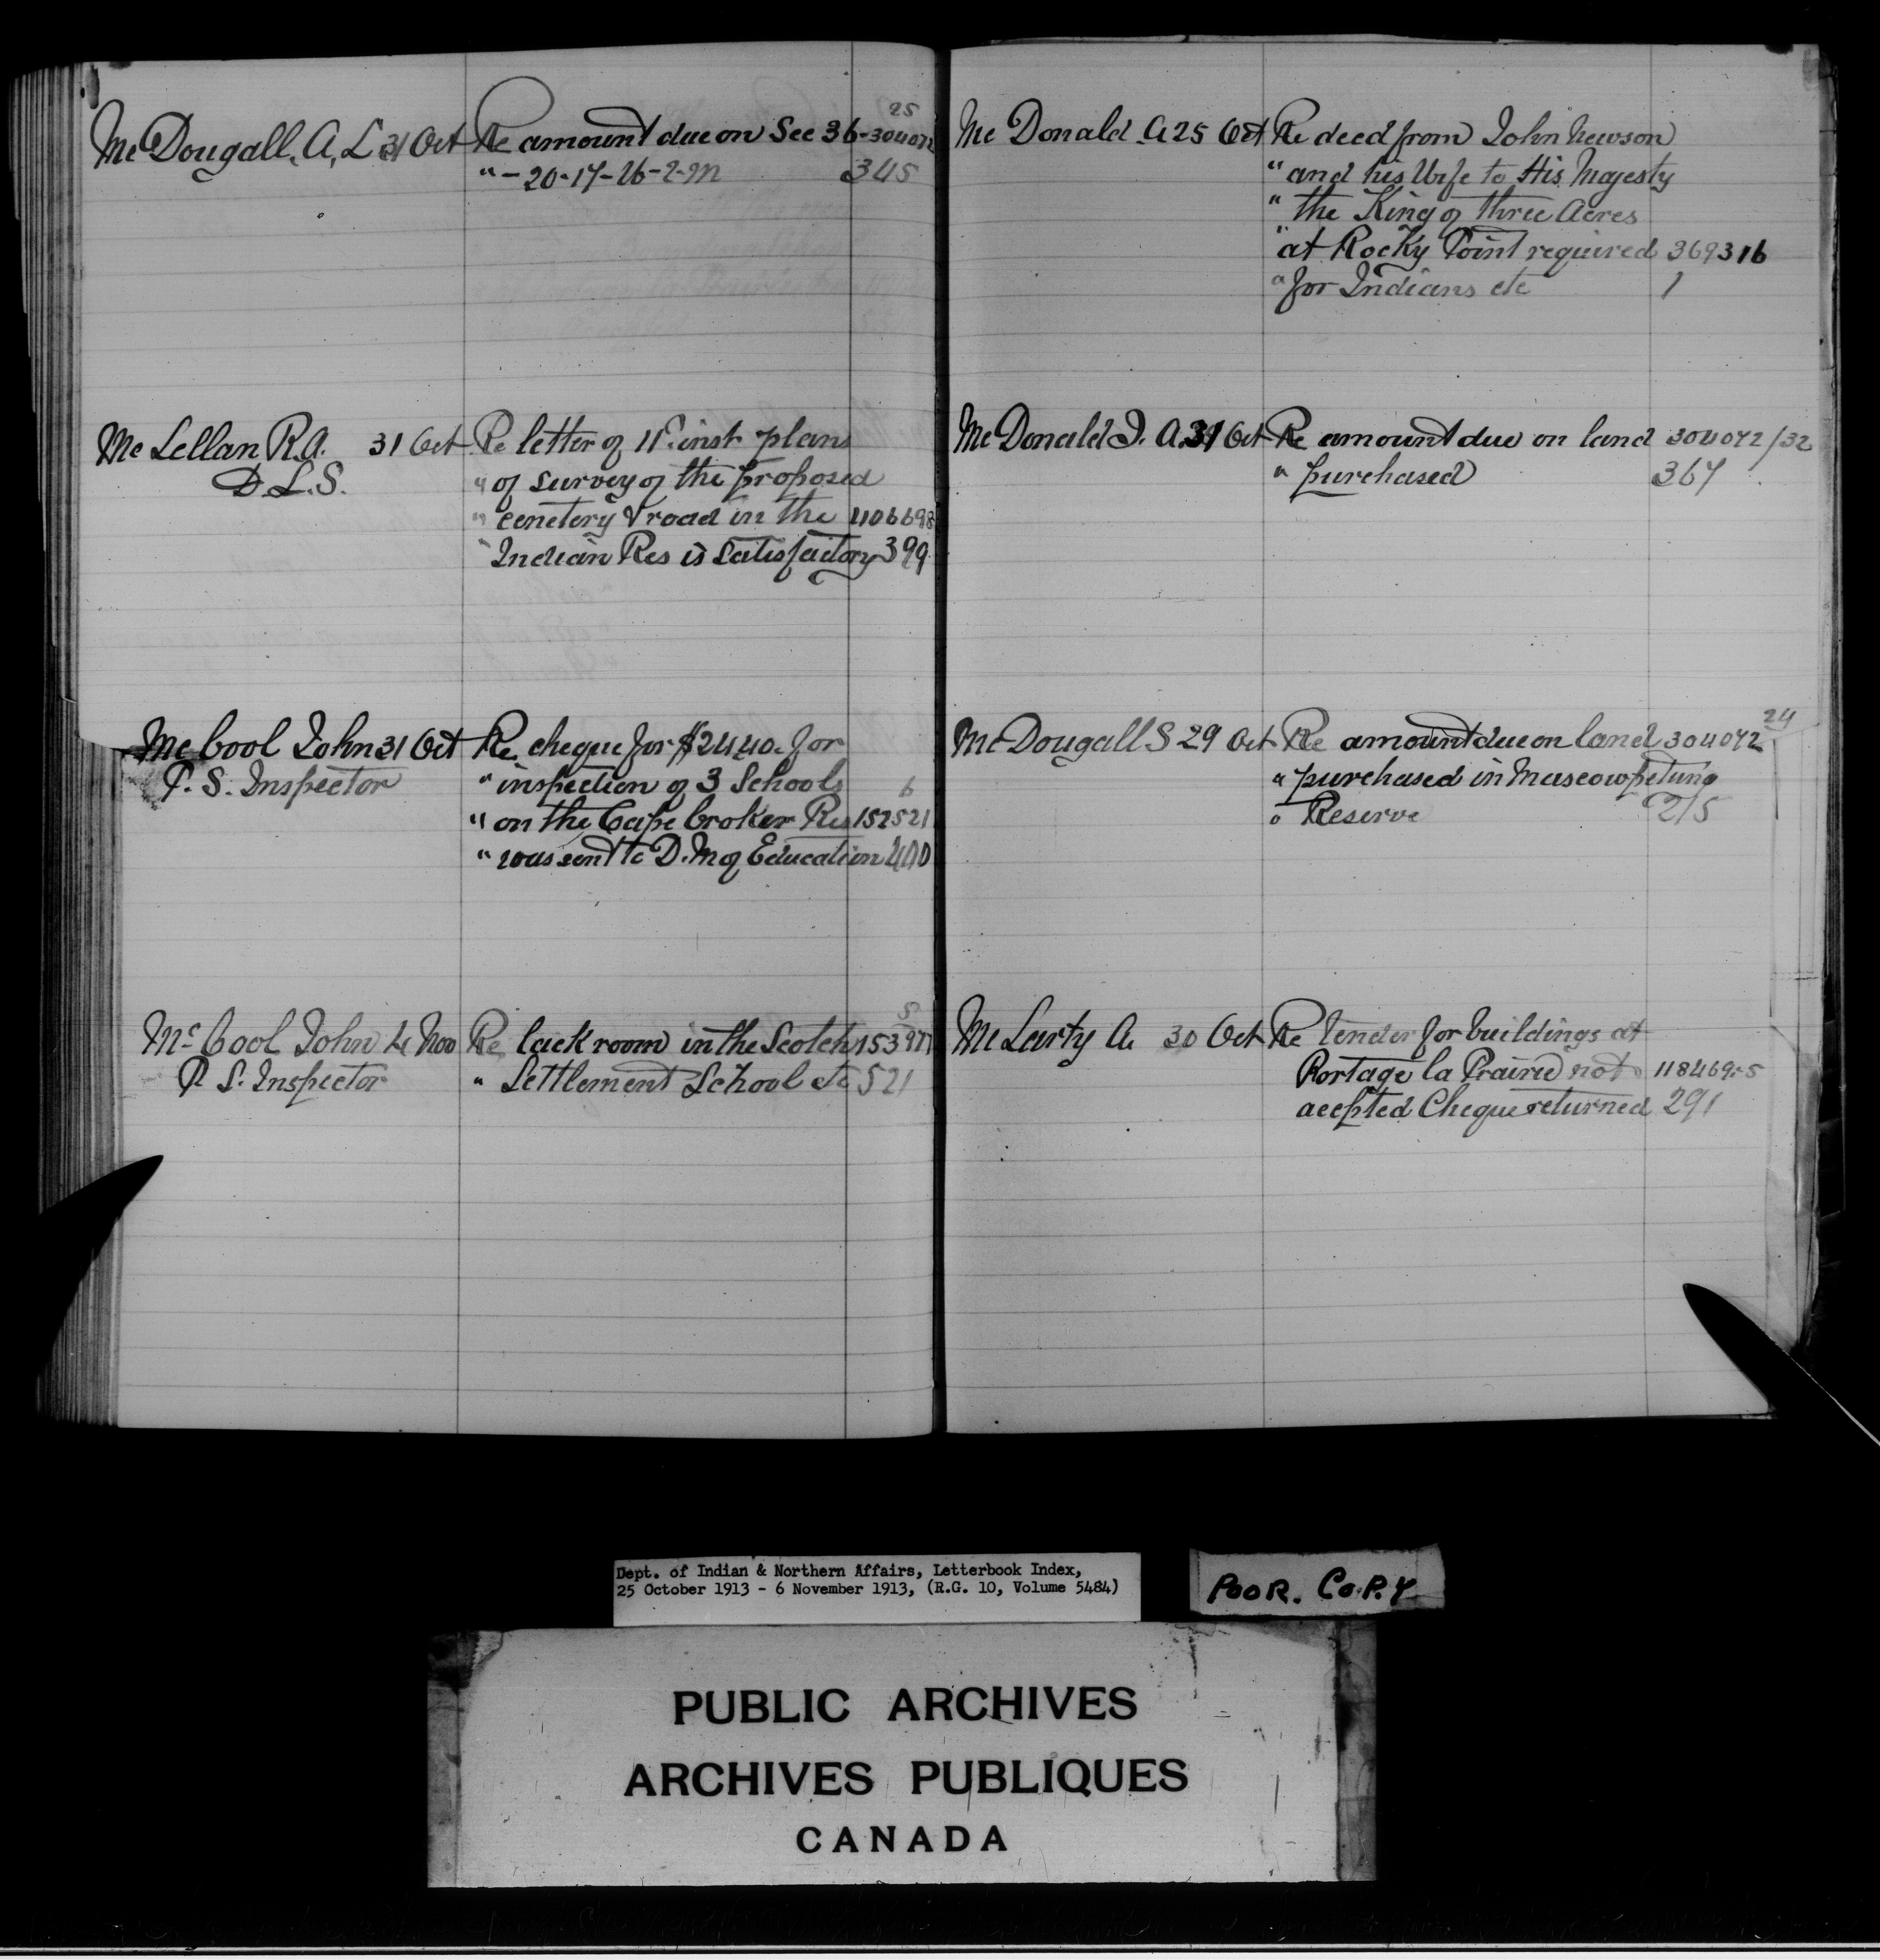 25
Mc Dougall, A, L 31 Oct Re amount due on Sec 36-304072
" - 20-17-26-2-M 345
Mc Lellan R.A. 31 Oct Re letter of 11th inst plans
D.L.S. " of survey of the proposed
" cemetery & road in the 406698
" Indian Res is satisfactory 399
Mc Cool John 31 Oct Re cheque for $24.40. for
P. S. Inspector " inspection of 3 Schools 6
" on the Cape Croker Res 152521
" was sent to D.M of Education 400
5
Mc Cool John 4 Nov Re lack room in the Scotch 153977
P S. Inspector " Settlement School etc 521
Mc Donald A 25 Oct Re deed from John Newson
" and his Wife to His Majesty
" the King of three Acres
" at Rocky Point required 369316
" for Indians etc 1
Mc Donald J. A. 31 Oct Re amount due on land 304072/32
" purchased 367
24
Mc Dougall S 29 Oct Re amount due on land 304072
" purchased in Muscowpetung
" Reserve 215
Mc Larty A. 30 Oct Re tender for buildings at
Portage la Prairie not 118469-5
accpted Cheque returned 291
Dept. of Indian & Northern Affairs, Letterbook Index,
25 October 1913 - 6 November 1913, (R.G. 10, Volume 5484)
POOR. COPY
PUBLIC ARCHIVES
ARCHIVES PUBLIQUES
CANADA